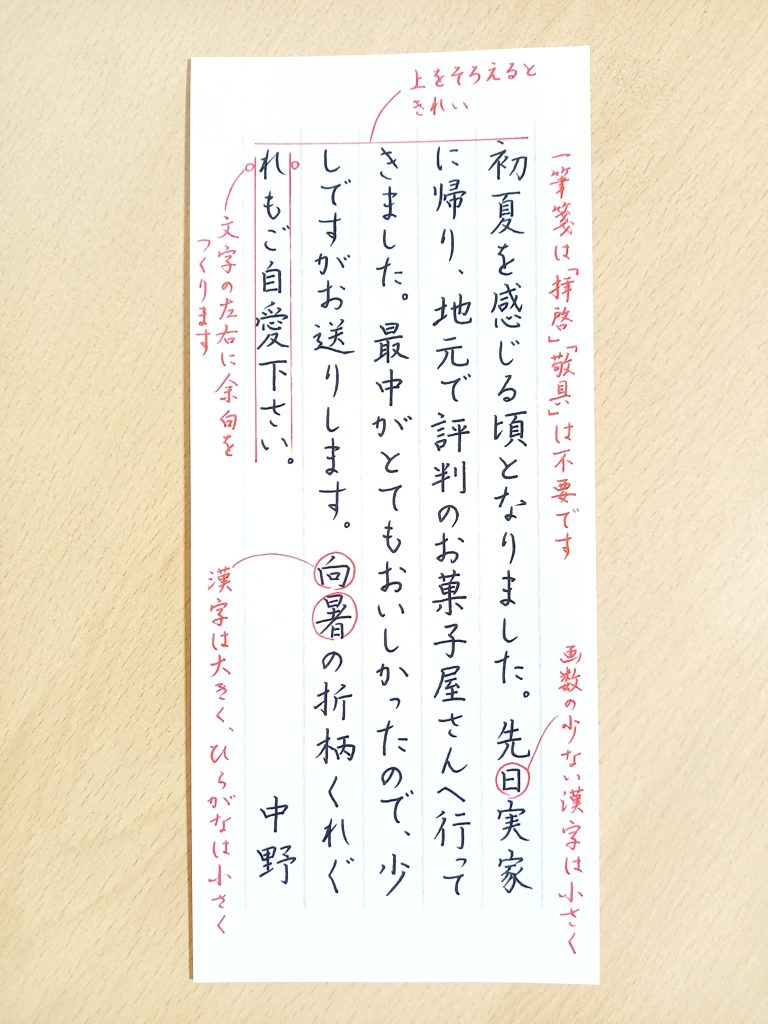 上をそろえると
きれい
一筆箋は「拝啓」「敬具」は不要です
初夏を感じる頃となりました。先日実家
に帰り、地元で評判のお菓子屋さんへ行って
きました。最中がとてもおいしかったので、少
しですがお送りします。向暑の折柄くれぐ
れもご自愛下さい。
中野
画数の少ない漢字は小さく
文字の左右に余白を
つくります
漢字は大きく、ひらがなは小さく